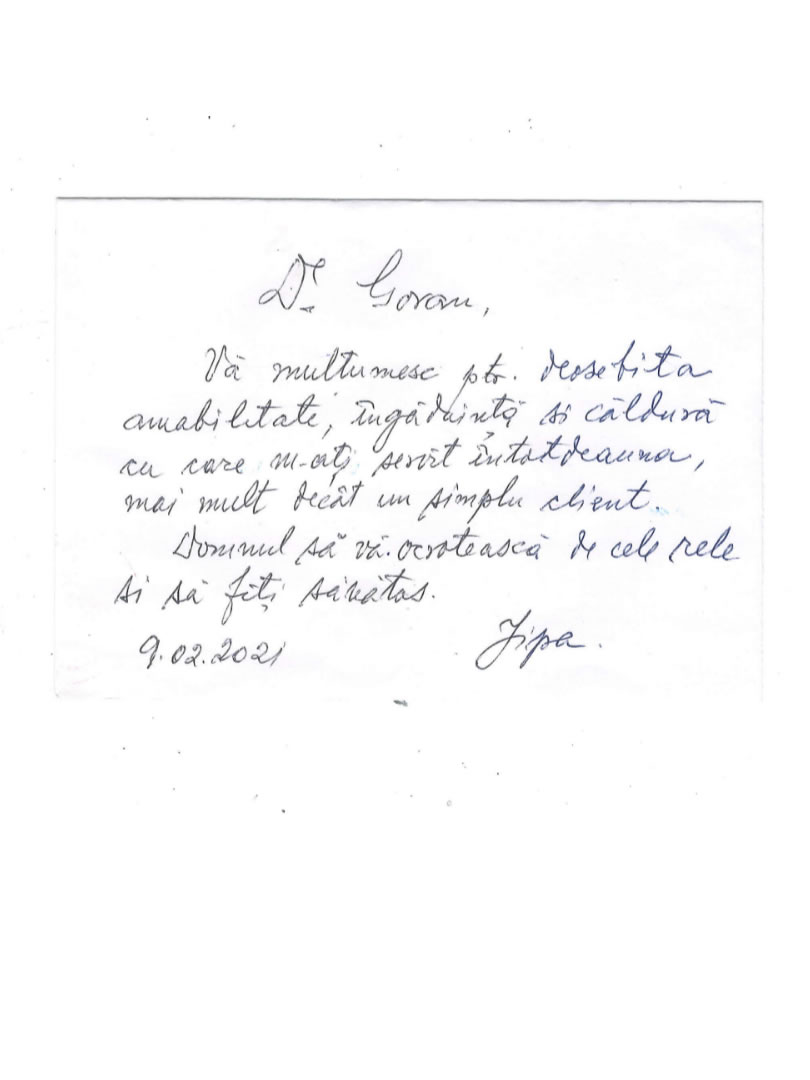 Dr. Goran,
Vă multumesc ptr. deosebita
amabilitate, îngăduință si căldură
cu care m-ați servit întotdeauna,
mai mult decât un simplu client.
Domnul să vă ocrotească de cele rele
si să fiți sănătos.
9.02.2021 Jipa.